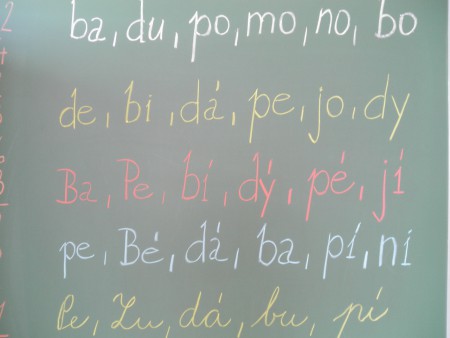 ba, du, po, mo, no, bo
de, bi, dá, pe, jo, dy
Ba, Pe, bí, dý, pé, jí
pe, Bé, dá, ba, pí, ní
Pe, Lu, dá, bu, pí